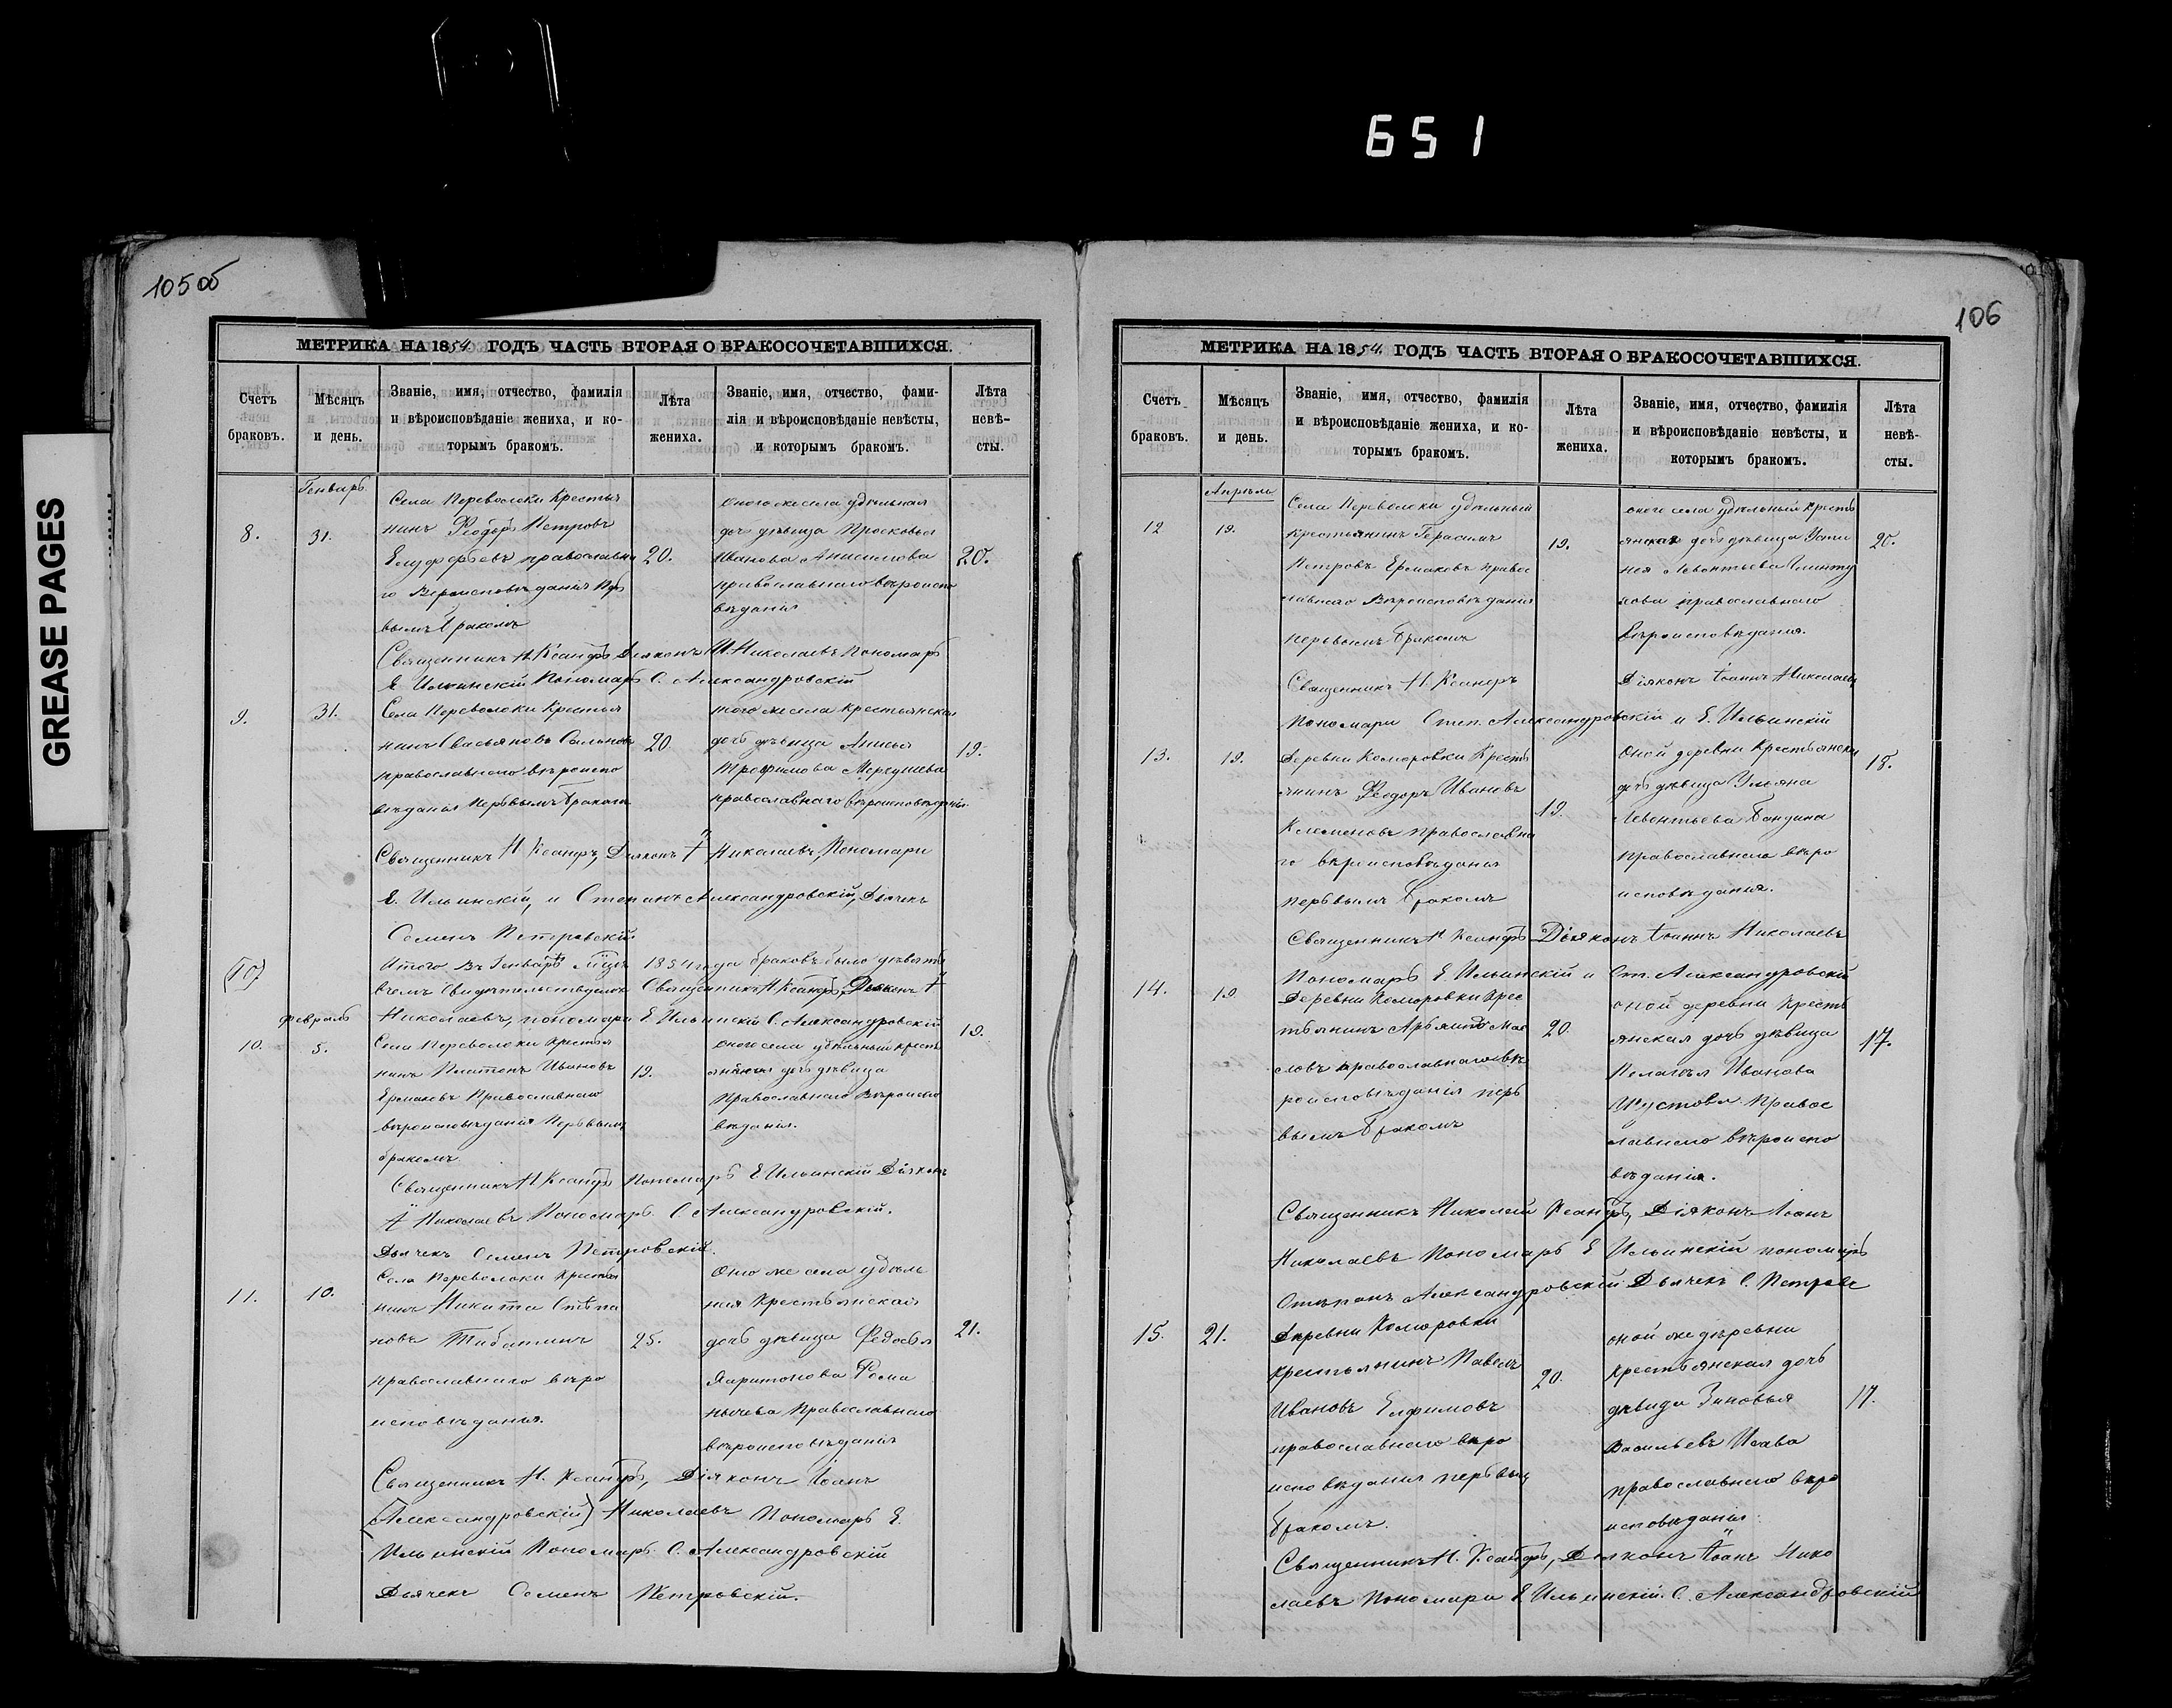 651
GREASE PAGES
105 об
МЕТРИКА НА 1854. ГОДЪ ЧАСТЬ ВТОРАЯ О БРАКОСОЧЕТАВШИХСЯ.
Счетъ браковъ.
Мѣсяцъ и день.
Званіе, имя, отчество, фамилія
и вѣроисповѣданіе жениха, и ко-
торымъ бракомъ.
Лѣта жениха.
Званіе, имя, отчество, фами-
лія и вѣроисповѣданіе невѣсты,
и которымъ бракомъ.
Лѣта невѣ-
сты.
Генварь
8.
31.
Села Переволоки Крестья
нинъ Ѳедоръ Петровъ
православна
го Вероисповѣданія Пер
вымъ бракомъ
20.
оногоже села удѣльная
дочь дѣвица Просковья
Иванова Анисимова
православнаго вѣроиспо
вѣданія
20.
Священникъ Н. Ксанфъ Діяконъ И. Николаевъ Пономарь
Е Ильинскій Пономарь С. Александровскій
9.
31.
Села Переволоки Крестья
нинъ
православнаго вѣроиспо
вѣданія Первымъ бракомъ
20.
того же села крестьянская
дочь дѣвица Анисья
Трофимова
православнаго вѣроисповѣданія
19.
Священникъ Н Ксанфъ, Діяконъ І Николаевъ, Пономари
Е. Ильинскій, и Степанъ Александровскій, Дьячекъ
Семенъ Петровскій
Итого Въ Генварѣ мѣцѣ 1854 года браковъ было девять
въ чемъ Свидетельствуемъ Священникъ Н Ксанфъ, Діяконъ І
Николаевъ, пономари Е Ильинскій С. Александровскій
Февраль
10.
5.
Села Переволоки Крестья
нинъ Платонъ Ивановъ
Ермаковъ Православнаго
вѣроисповѣданія Первымъ
бракомъ
19.
Оного села удѣльный крестья
янская дочь дѣвица
Православнаго Вѣроиспо
вѣданія.
19.
Священникъ Н Ксанфъ Пономарь Е Ильинскій Діяконъ
І Николаевъ Пономарь С. Александровскій.
Дьячекъ Семенъ Петровскій.
11.
10.
Села Переволоки Крестья
нинъ Никита Степа
новъ
православнаго вѣро
исповѣданія.
25.
Оно же села удѣль
ная Крестьянская
дочь дѣвица Федосья
Харитонова Рома
нычева Православнаго
вѣроисповѣданія
21.
Священникъ Н. Ксанфъ, Діяконъ Іоанъ
(Александровскій) Николаевъ Пономарь Е.
Ильинскій Пономарь С. Александровскій
Дьячекъ Семенъ Петровскій.
106
МЕТРИКА НА 1854. ГОДЪ ЧАСТЬ ВТОРАЯ О БРАКОСОЧЕТАВШИХСЯ.
Счетъ браковъ.
Мѣсяцъ и день.
Званіе, имя, отчество, фамилія
и вѣроисповѣданіе жениха, и ко-
торымъ бракомъ.
Лѣта жениха.
Званіе, имя, отчество, фамилія
и вѣроисповѣданіе невѣсты, и
которымъ бракомъ.
Лѣта невѣ-
сты.
Апрель
12
19.
Села Переволоки удѣльный
крестьянинъ Герасимъ
Петровъ Ермаковъ правос
лавнаго Вѣроисповѣданія
первымъ бракомъ
19.
оного села удѣльный кресть
янская дочь дѣвица Усти
нея Левонтьева
православнаго
вѣроисповѣданія.
20.
Священникъ Н. Ксанфъ Діяконъ Іоаннъ Николаевъ
Пономари Степ. Александровскій и Е. Ильинскій
13.
19.
Деревни Коморовки Кресть
янинъ Ѳеодоръ Ивановъ
Клеменовъ православна
го вѣроисповѣданія
первымъ бракомъ
19.
Оной деревни Крестьянская
дочь дѣвица Ульяна
Левонтьева Бандина
православнаго вѣро
исповѣданія.
18.
Священникъ Н Ксанфъ Діяконъ Іоаннъ Николаевъ
Пономарь Е Ильинскій и Ст. Александровскій
14.
19
Деревни Коморовки Крес
тьянинъ Мас
ловъ православнаго вѣ
роисповѣданія перь
вымъ бракомъ
20.
оной деревни кресть
янская дочь дѣвица
Пелагѣя Иванова
Шустова правос
лавнаго вѣроиспо
вѣданія.
17.
Священникъ Николай Ксанфъ, Діяконъ Іоанъ
Николаевъ Пономарь Е Ильинскій пономарь
Стѣпанъ Александровскій Дьячекъ С. Петровъ
15.
21.
Деревни Коморовки
крестьянинъ Павелъ
Ивановъ Елфимовъ
православнаго вѣро
исповѣданія первымъ
бракомъ.
20.
оной же деревни
крестьянская дочь
дѣвица Зиновья
Васильевъ Исава
православнаго вѣро
исповѣданія.
17.
Священникъ Н. Ксанфъ, Діяконъ Іоанъ Нико
лаевъ Пономари Е Ильинскій. С. Александровскій